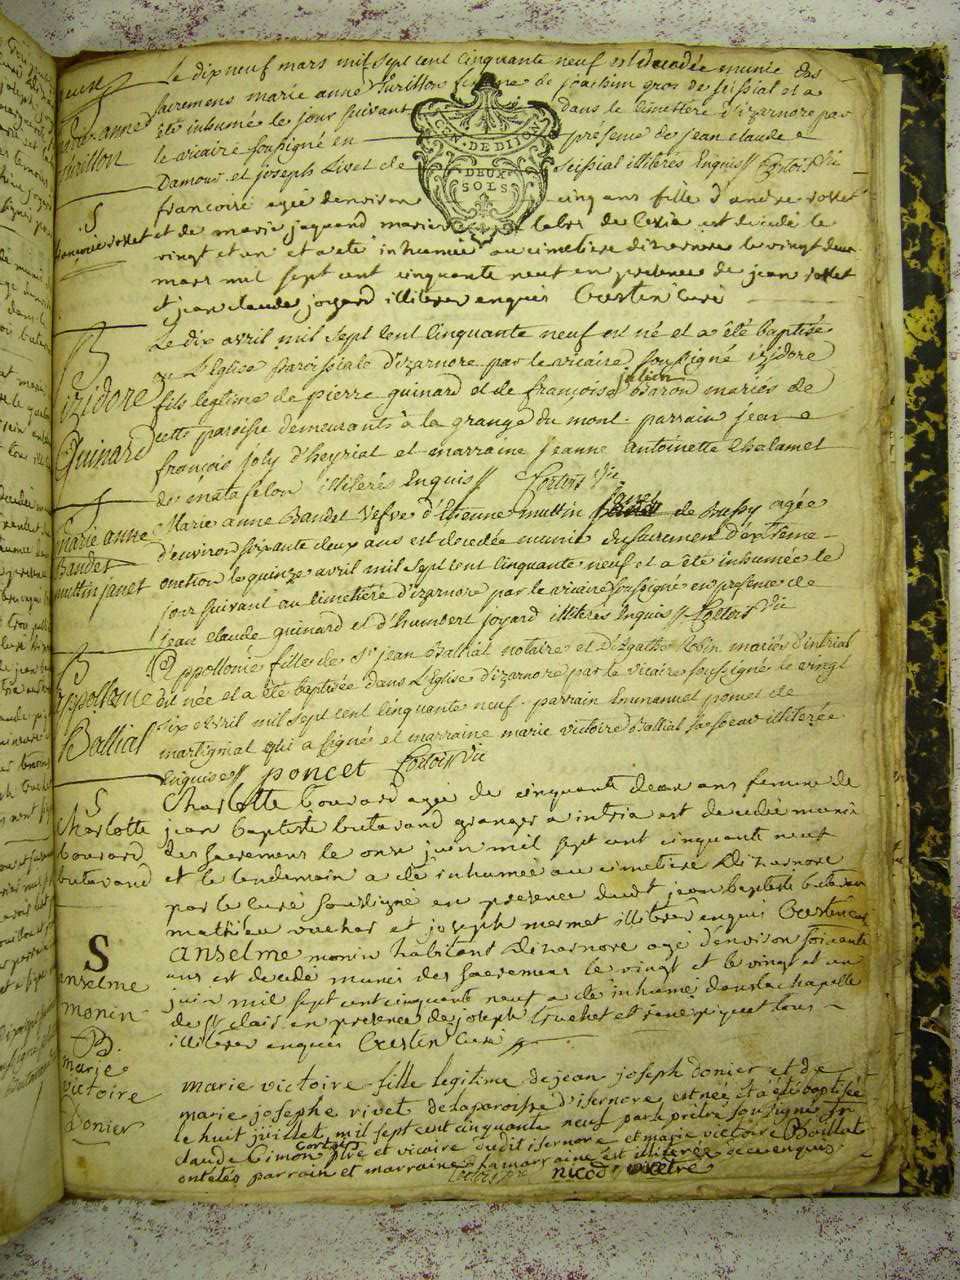 Le dix neuf mars mil sept cent cinquante neuf est décédée munie des
sacremens marie anne Turillon femme de joachim gros de seissiat et a
été inhumée le jour suivant dans le cimetière d'izarnore par
le vicaire soussigné en présence de jean claude
Damour et joseph Livet de seissiat illiterés Enquis Cortois Vic
marie anne
turillon
GEN. DE DIJON
DEUX
SOLS
S
françoise rosset
francoise agée denviron cinq ans fille d'andre rosset
et de marie jaquand mariés de Cexia est decedé le
vingt et un et a été inhumée au cimetiere dizernore le vingt deux
mars mil sept cent cinquante neuf en presence de jean rosset
et jean claude joyard illiterez enquis Crestin curé
B
izidore
Guinard
Le dix avril mil sept cent cinquante neuf est né et a été baptisé
en L'Eglise paroissiale d'izarnore par le vicaire soussigné izidore
fils legitime de pierre guinard et de françoise Baron mariés de
cette paroisse demeurants à la grange du mont. parrain jean
françois joly d'heyriat et marraine jeanne Antoinette Chalamel
de matafelon illiterés Enquis Cortois Vic
Marie anne
Baudet
muttin janet
Marie anne Baudet Vefve d'Etienne muttin janet de Bussy agée
d'environ soixante deux ans est decedée munie du sacrement d'extreme
onction le quinze avril mil sept cent cinquante neuf et a été inhumée le
jour suivant au cimetière d'izarnore par le vicaire soussigné en presence de
jean claude guinard et d'humbert joyard illiterés Enquis Cortois Vic
B
appollonie
Balliat
Appollonie fille de Sr jean Balliat notaire et d'Agathe Robin mariés d'intriat
est née et a été baptisée dans L'Eglise d'izarnore par le vicaire soussigné le vingt
six avril mil sept cent cinquante neuf. parrain Emmanuel poncet de
martignat qui a signé et marraine marie victoire Balliat sa soeur illiterée
Enquise poncet Cortois Vic
S
Charlotte
bouvard
butavand
Charlotte bouvard agée de cinquante deux ans femme de
jean baptiste butavand granger a intria est decedée munie
des sacremens le onze juin mil sept cent cinquante neuf
et le lendemain a été inhumée au cimetiere dizarnore
par le curé soussigné en presence dudt jean baptiste butavan
mathieu vucher et joseph mermet illiterez enquis Crestin curé
S
anselme
monin
anselme monin habitant dizarnore agé d'environ soixante
ans est decedé muni des sacremens le vingt et le vingt et un
juin mil sept cent cinquante neuf a été inhumé dans la chapelle
de St clair en presence de joseph et rené piquet tous
illiterez enquis Crestin curé
B
marie
victoire
Donier
marie victoire fille legitime de jean joseph donier et de
marie josephe rivet de la paroisse d'isernore est née et a été baptisée
le huit juillet mil sept cent cinquante neuf par le prêtre soussigné
claude simon Cortois ptre et vicaire dudit isernore et marie victoire Baillat
ont étés parrain et marraine la marraine est illiterée de ce enquis
Cortois ptre nicod prêtre